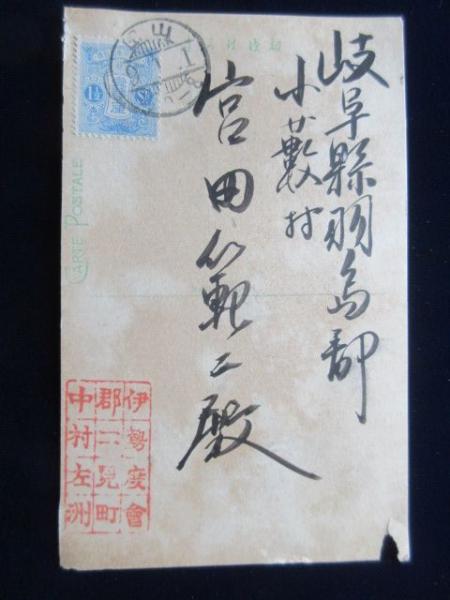 岐阜縣羽島郡
小藪村
宮田範二殿
CARTE POSTALE
伊勢度會
郡二見町
中村左洲